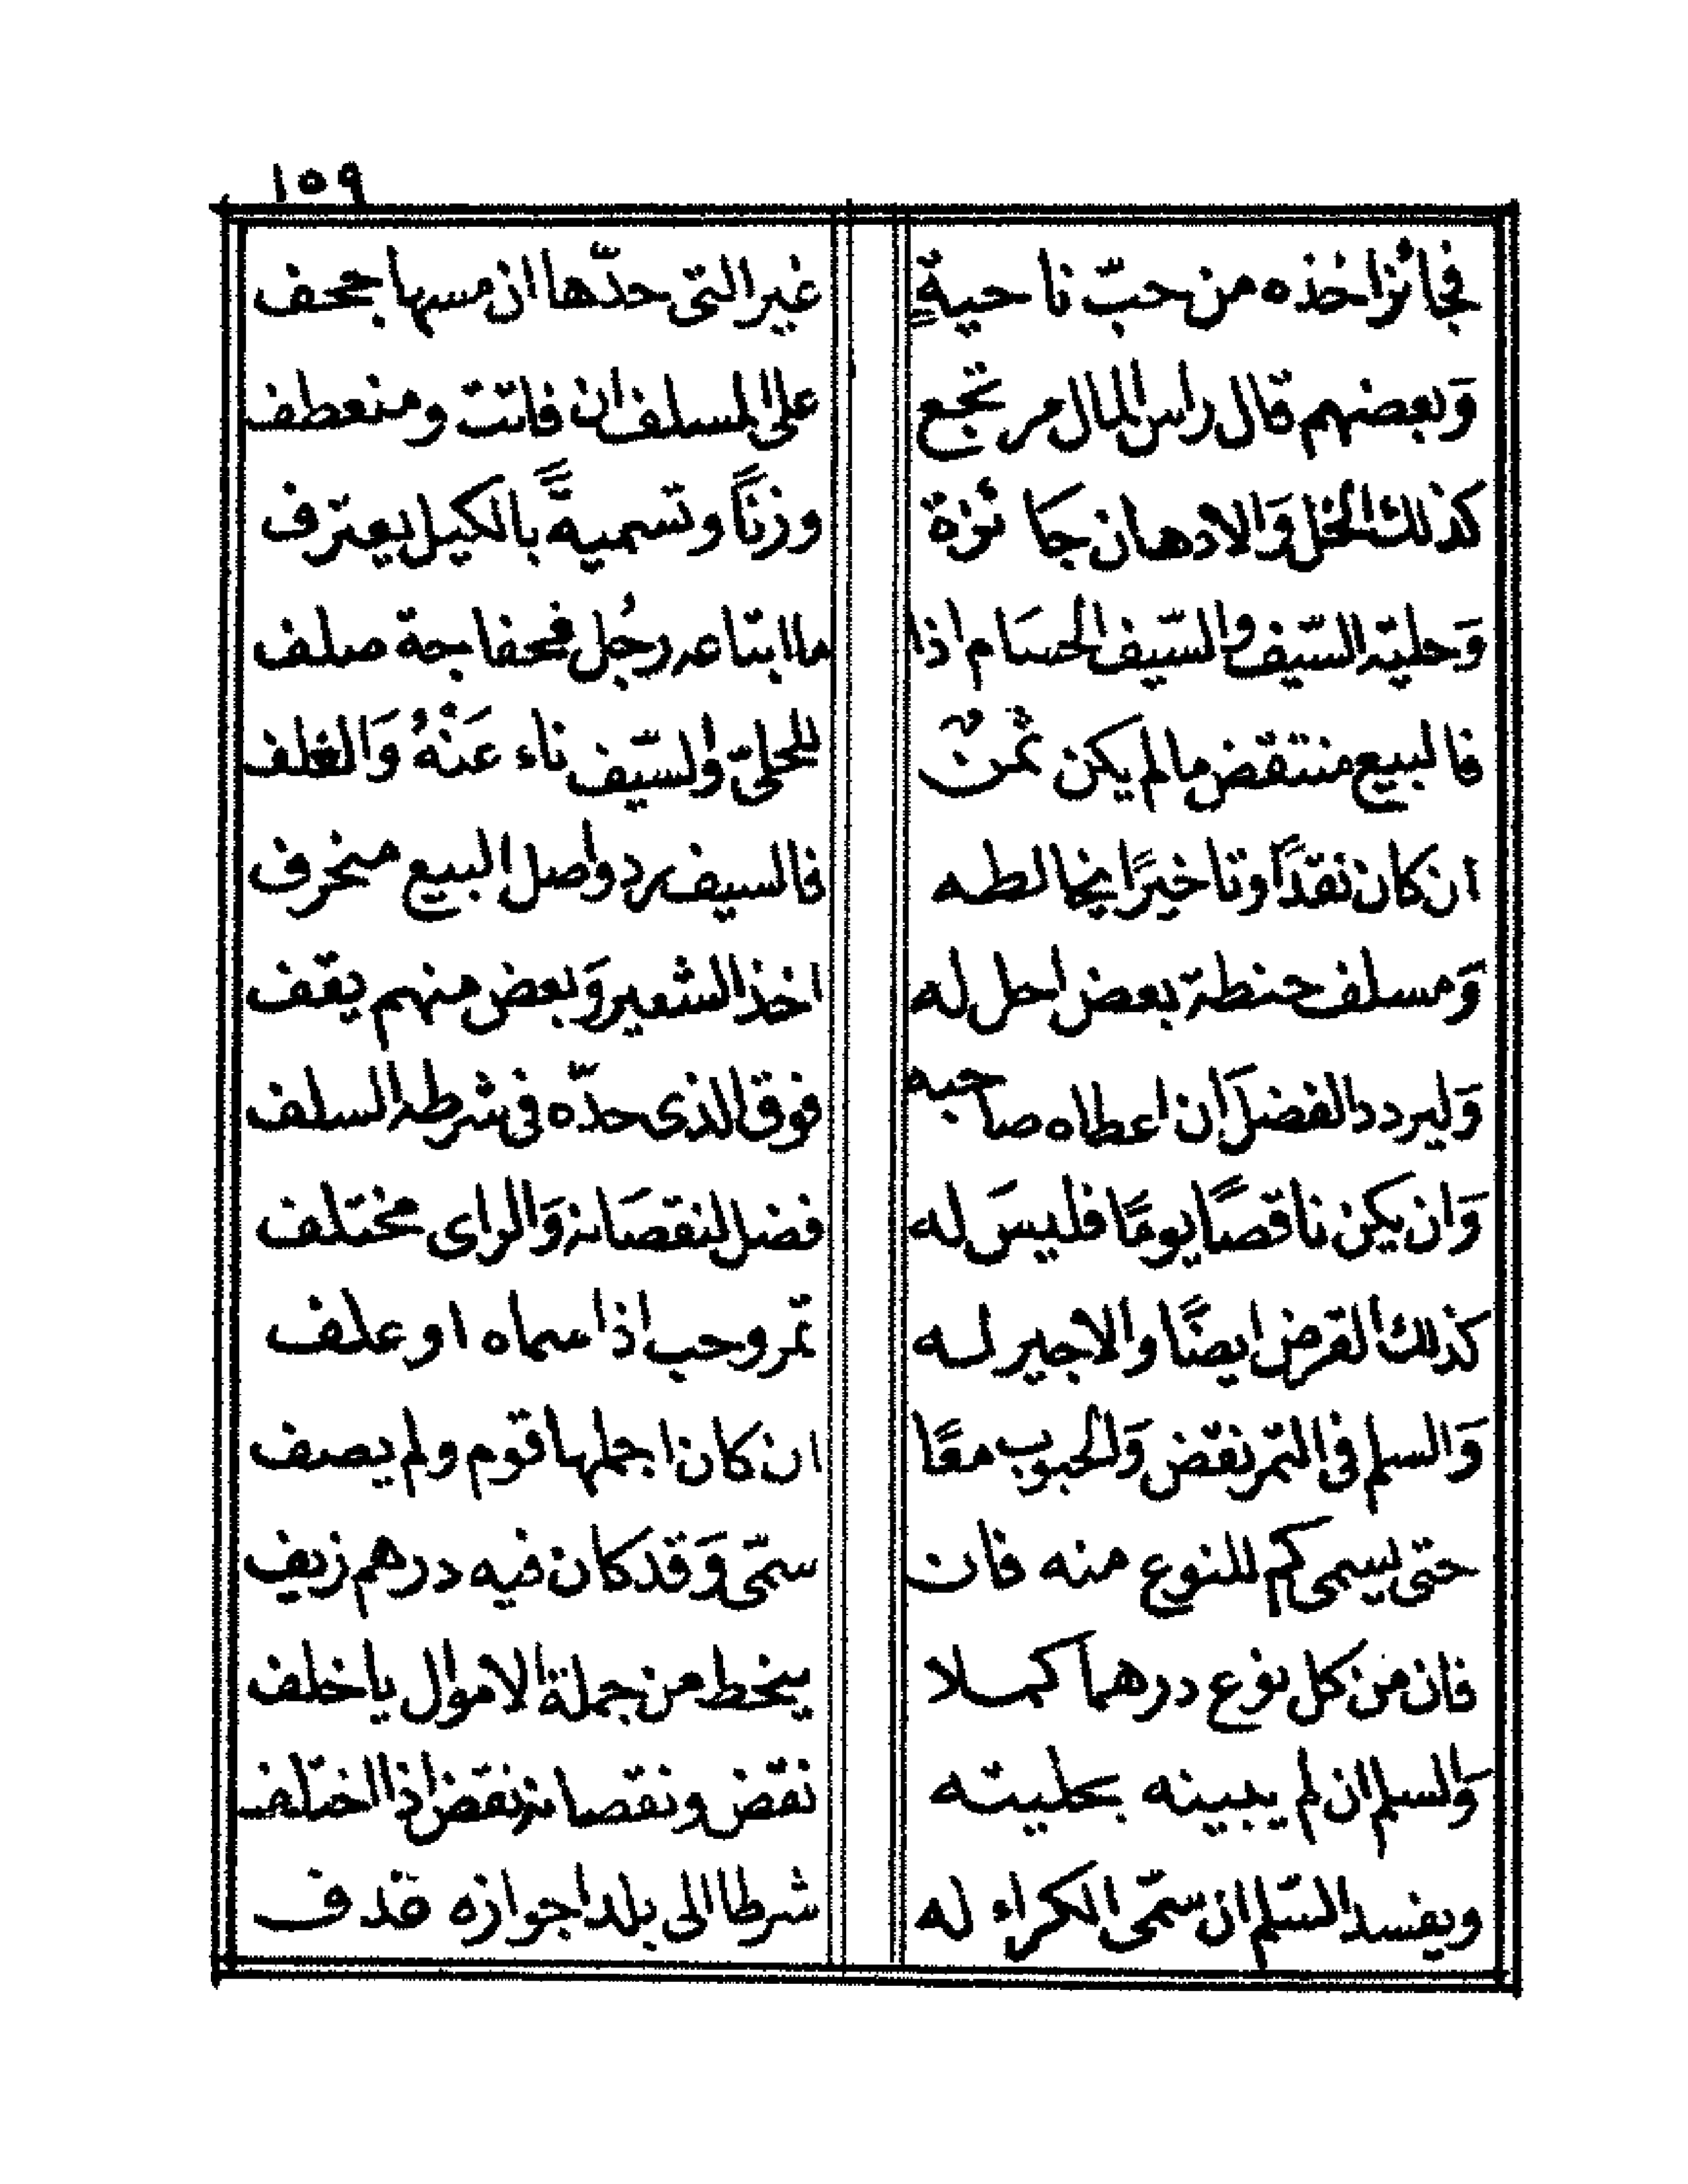 ١٥٩
فجائز اخذه من حبّ ناحيةٍ غير التى حدّها ان مسها جحف
وَبعضهم قال راس المال مرتجع على المسلف ان فاتت ومنعطف
كذلك الخل وَالادهان جائزة وزنًا وتسميةً بالكيل يعترف
وَحلية السّيف والسّيف الحسَام اذا ما ابتاعه رجُل صلف
فالبيع منتقض مالم يكن ثمنٌ للحلىّ والسّيف ناء عَنْهُ وَالغلف
ان كان نقدًا وتاخيرًا يخالطه فالسيف يرد واصل البيع منحرف
وَمسلف حنطة بعض احل له اخذ الشعير وَبعض منهم يقف
وَليردد الفضلَ ان اعطاه صاحبه فوق الذى حدّه فى شرطه السلف
وَان يكن ناقصًا يومًا فليسَ له فضل لنقصَانه وَالراى مختلف
كذلك القرض ايضًا والاجير له تمر وحب اذا سماه او علف
وَالسلم فى التمر نقض وَالحبوب معًا ان كان اجملها قوم ولم يصف
حتى يسمى كم للنوع منه فان سمّى وَقد كان فيه درهم زيف
فان من كل نوع درهما كملا ينحط من جملة الاموال ياخلف
وَالسلم ان لم يبينه بحليته نقض ونقصانه نقض اذا اختلف
ويفسد السّلم ان سمّى الكراء له شرطا الى بلد اجوازه قذف